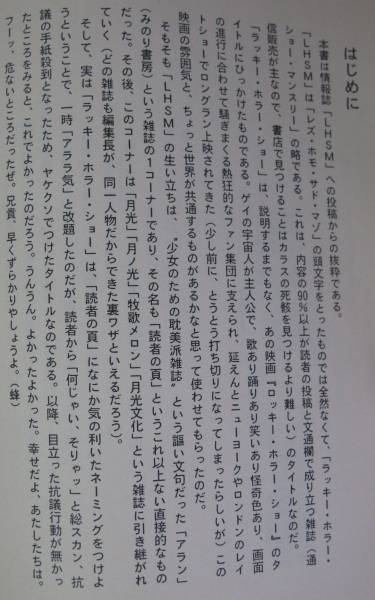 はじめに
本書は情報誌「ＬＨＳＭ」への投稿からの抜粋である。
「ＬＨＳＭ」は「レズ・ホモ・サド・マゾ」の頭文字をとったものでは全然なくて、「ラッキー・ホラー・
ショー・マンスリー」の略である。これは、内容の90％以上が読者の投稿と文通欄で成り立つ雑誌（通
信販売が主なので、書店で見つけることはカラスの死骸を見つけるより難しい）のタイトルなのだ。
「ラッキー・ホラー・ショー」は、説明するまでもなく、あの映画『ロッキー・ホラー・ショー』のタ
イトルにひっかけたものである。ゲイの宇宙人が主人公で、歌あり踊りあり笑いあり怪奇色あり、画面
の進行に合わせて騒ぎまくる熱狂的なファン集団に支えられ、延えんとニューヨークやロンドンのレイ
トショーでロングラン上映されてきた（少し前に、とうとう打ち切りになってしまったらしいが）この
映画の雰囲気と、ちょっと世界が共通するものがあるかなと思って使わせてもらったのだ。
そもそも「ＬＨＳＭ」の生い立ちは、〝少女のための耽美派雑誌〟という謳い文句だった「アラン」
（みのり書房）という雑誌の１コーナーであり、その名も「読者の頁」というこれ以上ない直接的なもの
だった。その後、このコーナーは「月光」「月ノ光」「牧歌メロン」「月光文化」という雑誌に引き継がれ
ていく（どの雑誌も編集長が、同一人物だからできた裏ワザといえるだろう）。
そして、実は「ラッキー・ホラー・ショー」は、「読者の頁」になにか気の利いたネーミングをつけよ
うということで、一時「アララ気」と改題したのだが、読者から「何じゃい、そりゃッ」と総スカン、抗
議の手紙殺到となったため、ヤケクソでつけたタイトルなのである。以降、目立った抗議行動が無かっ
たところをみると、これでよかったのだろう。うんうん。よかったよかった。幸せだよ、あたしたちは。
フーッ、危ないところだったぜ。兄貴、早くずらかりやしょうよ。（蜂）